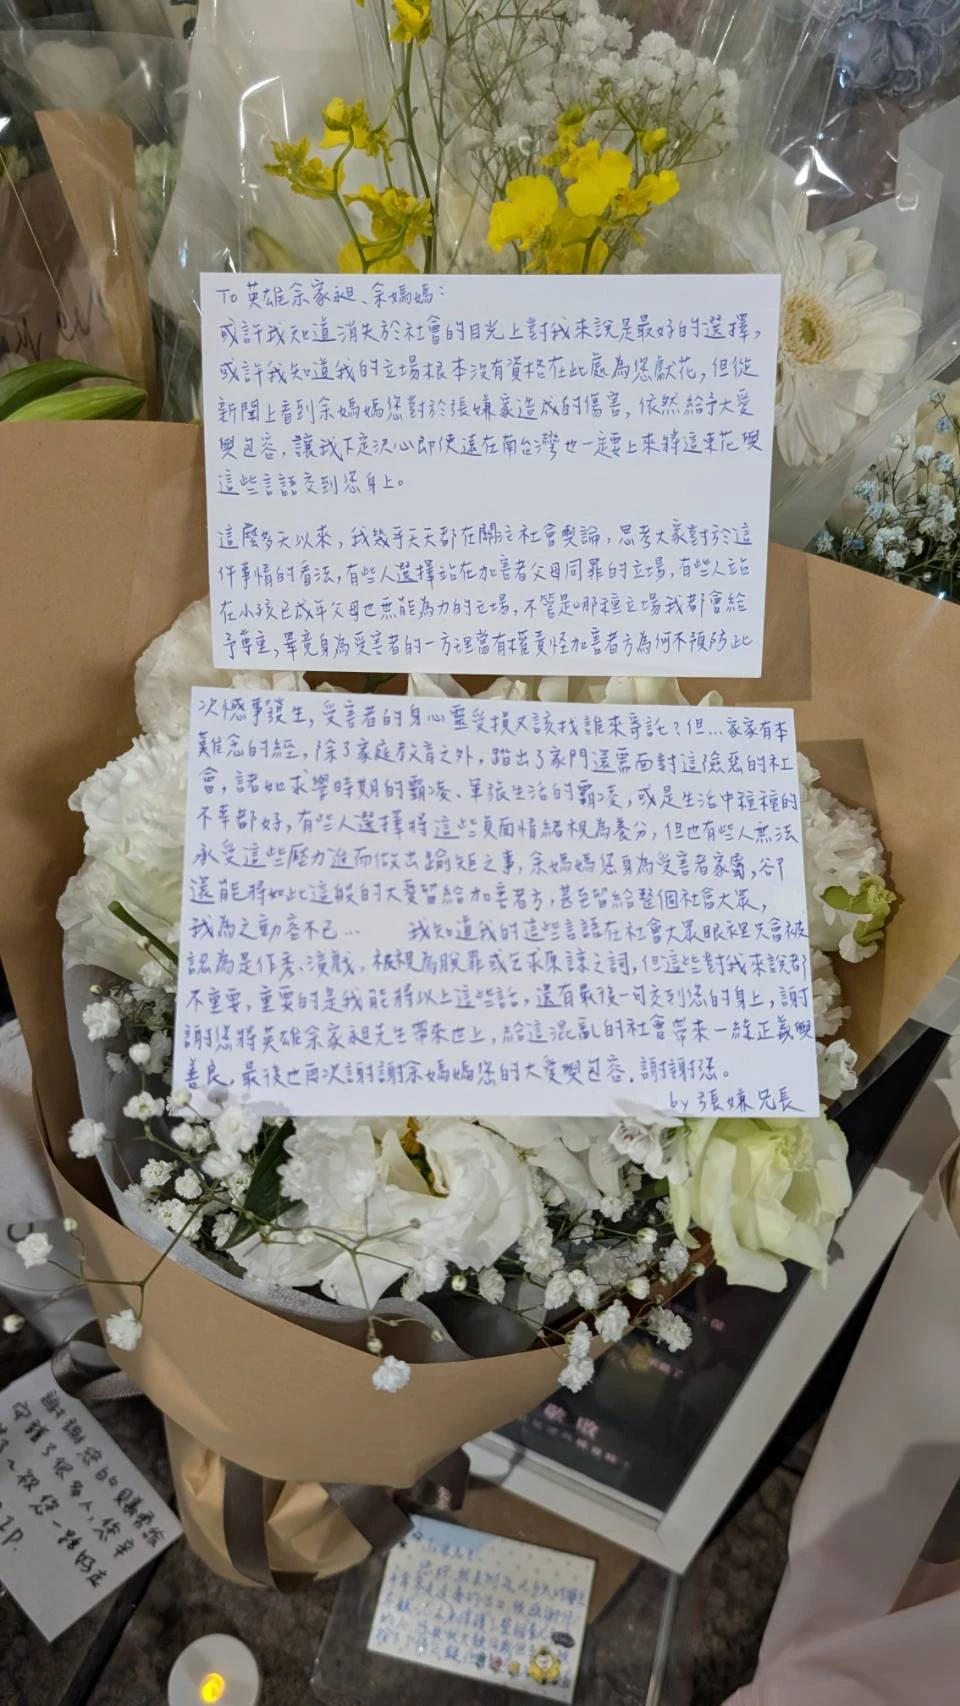 To 英雄余家昶、余媽媽：
或許我知道消失於社會的目光上對我來說是最好的選擇，
或許我知道我的立場根本沒有資格在此處為您獻花，但從
新聞上看到余媽媽您對於張嫌家造成的傷害，依然給予大愛
與包容，讓我下定決心即使遠在南台灣也一定要上來將這束花與
這些言語交到您身上。
這麼多天以來，我幾乎天天都在關注社會輿論，思考大家對於這
件事情的看法，有些人選擇站在加害者父母同罪的立場，有些人站
在小孩已成年父母也無能為力的立場，不管是哪種立場我都會給
予尊重，畢竟身為受害者的一方理當有權責怪加害者方為何不預防此
次憾事發生，受害者的身心靈受損又該找誰來寄託？但…家家有本
難念的經，除了家庭教育之外，踏出了家門還需面對這險惡的社
會，諸如求學時期的霸凌、軍旅生活的霸凌，或是生活中種種的
不幸都好，有些人選擇將這些負面情緒視為養分，但也有些人無法
承受這些壓力進而做出踰矩之事，余媽媽您身為受害者家屬，卻
還能將如此這般的大愛留給加害者方，甚至留給整個社會大眾，
我為之動容不已… 我知道我的這些言語在社會大眾眼裡只會被
認為是作秀、演戲，被視為脫罪或乞求原諒之詞，但這些對我來說都
不重要，重要的是我能將以上這些話，還有最後一句交到您的身上，謝
謝您將英雄余家昶先生帶來世上，給這混亂的社會帶來一線正義與
善良，最後也再次謝謝余媽媽您的大愛與包容，謝謝您。
by 張嫌兄長
謝謝您的
守護了很多人，您辛
苦了～祝您一路好走
R.I.P.
敬啟